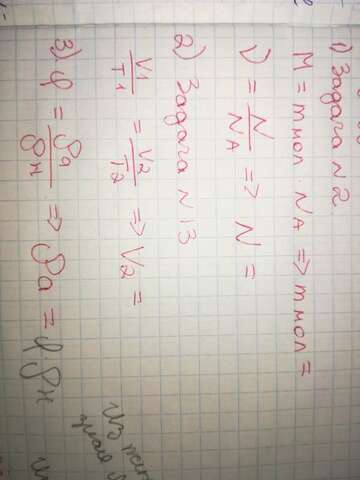 1) Задача N 2.
M = mмол · NA => mмол =
ν = N/NA => N =
2) Задача N 13
V1/T1 = V2/T2 => V2 =
3) φ = ρa/ρн => ρa = φ·ρн
Из